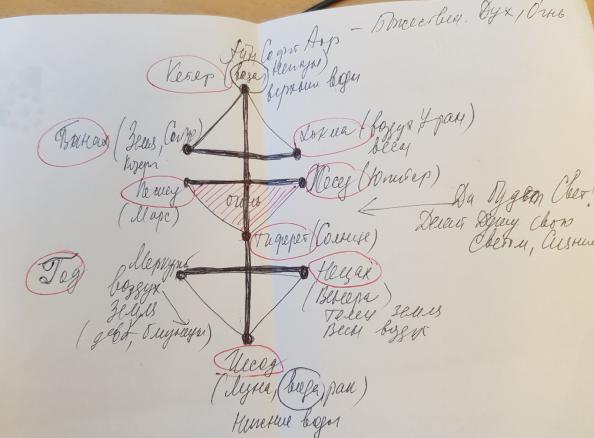 Айн Соф Аор — Божествен. Дух, Огонь
Кетер (вода, Нептун)
верхние воды
Бинах (Земля,
Хокма (воздух Уран)
весы
Гебу
(Марс)
огонь
Хесед (Юпитер)
Да будет Свет!
Делай Душу свою
Светом, Сияние
Тиферет (Солнце)
Год
Меркурий
воздух
Земля
(дева, близнецы)
Нецах
(Венера)
Телец земля
Весы воздух
Иесод
(Луна, вода, рак)
Нижние воды